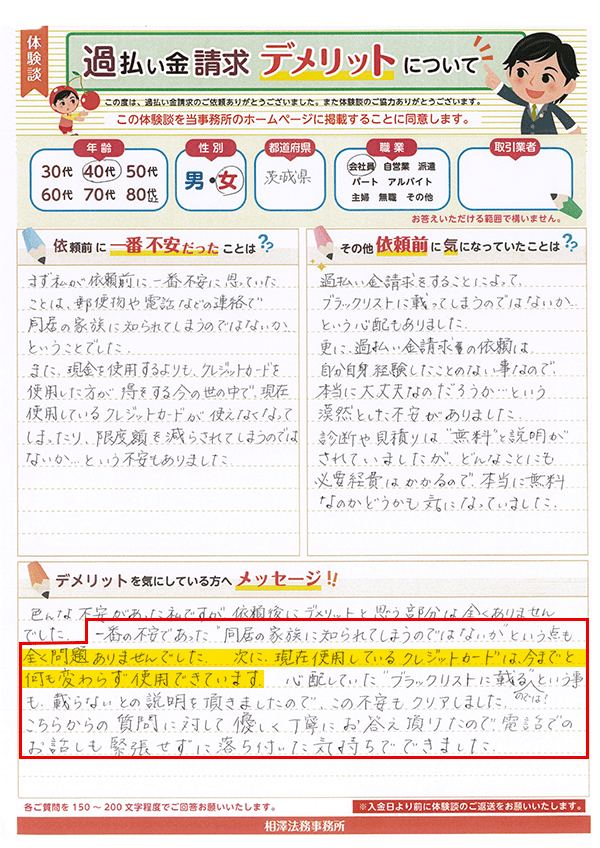 体験談
過払い金請求 デメリットについて
この度は、過払い金請求のご依頼ありがとうございました。また体験談のご協力ありがとうございます。
この体験談を当事務所のホームページに掲載することに同意します。
年齢
30代 40代 50代
60代 70代 80代以上
性別
男・女
都道府県
茨城県
職業
会社員 自営業 派遣
パート アルバイト
主婦 無職 その他
取引業者
お答えいただける範囲で構いません。
依頼前に一番不安だったことは??
まず私が依頼前に一番不安に思っていた
ことは、郵便物や電話などの連絡で
同居の家族に知られてしまうのではないか
ということでした。
また、現金を使用するよりも、クレジットカードを
使用した方が得をする今の世の中で、現在
使用しているクレジットカードが使えなくなって
しまったり、限度額を減らされてしまうのでは
ないか…という不安もありました。
その他依頼前に気になっていたことは??
過払い金請求をすることによって、
ブラックリストに載ってしまうのではないか…
という心配もありました。
更に、過払い金請求の依頼は、
自分自身経験したことのない事なので、
本当に大丈夫なのだろうか…という
漠然とした不安がありました。
診断や見積りは"無料"と説明が
されていましたが、どんなことにも
必要経費はかかるので、本当に無料
なのかどうかも気になっていました。
デメリットを気にしている方へ メッセージ!!
色んな不安があった私ですが、依頼後にデメリットと思う部分は全くありません
でした。 一番の不安であった"同居の家族に知られてしまうのではないか"という点も
全く問題ありませんでした。 次に、現在使用しているクレジットカードは、今までと
何も変わらず使用できています。 心配していた"ブラックリストに載るのでは!"という事
も、載らないとの説明を頂きましたので、この不安もクリアしました。
こちらからの質問に対して優しく丁寧にお答え頂けたので、電話での
お話しも緊張せずに落ち付いた気持ちでできました。
各ご質問を150〜200文字程度でご回答お願いいたします。
※入金日より前に体験談のご返送をお願いいたします。
相澤法務事務所